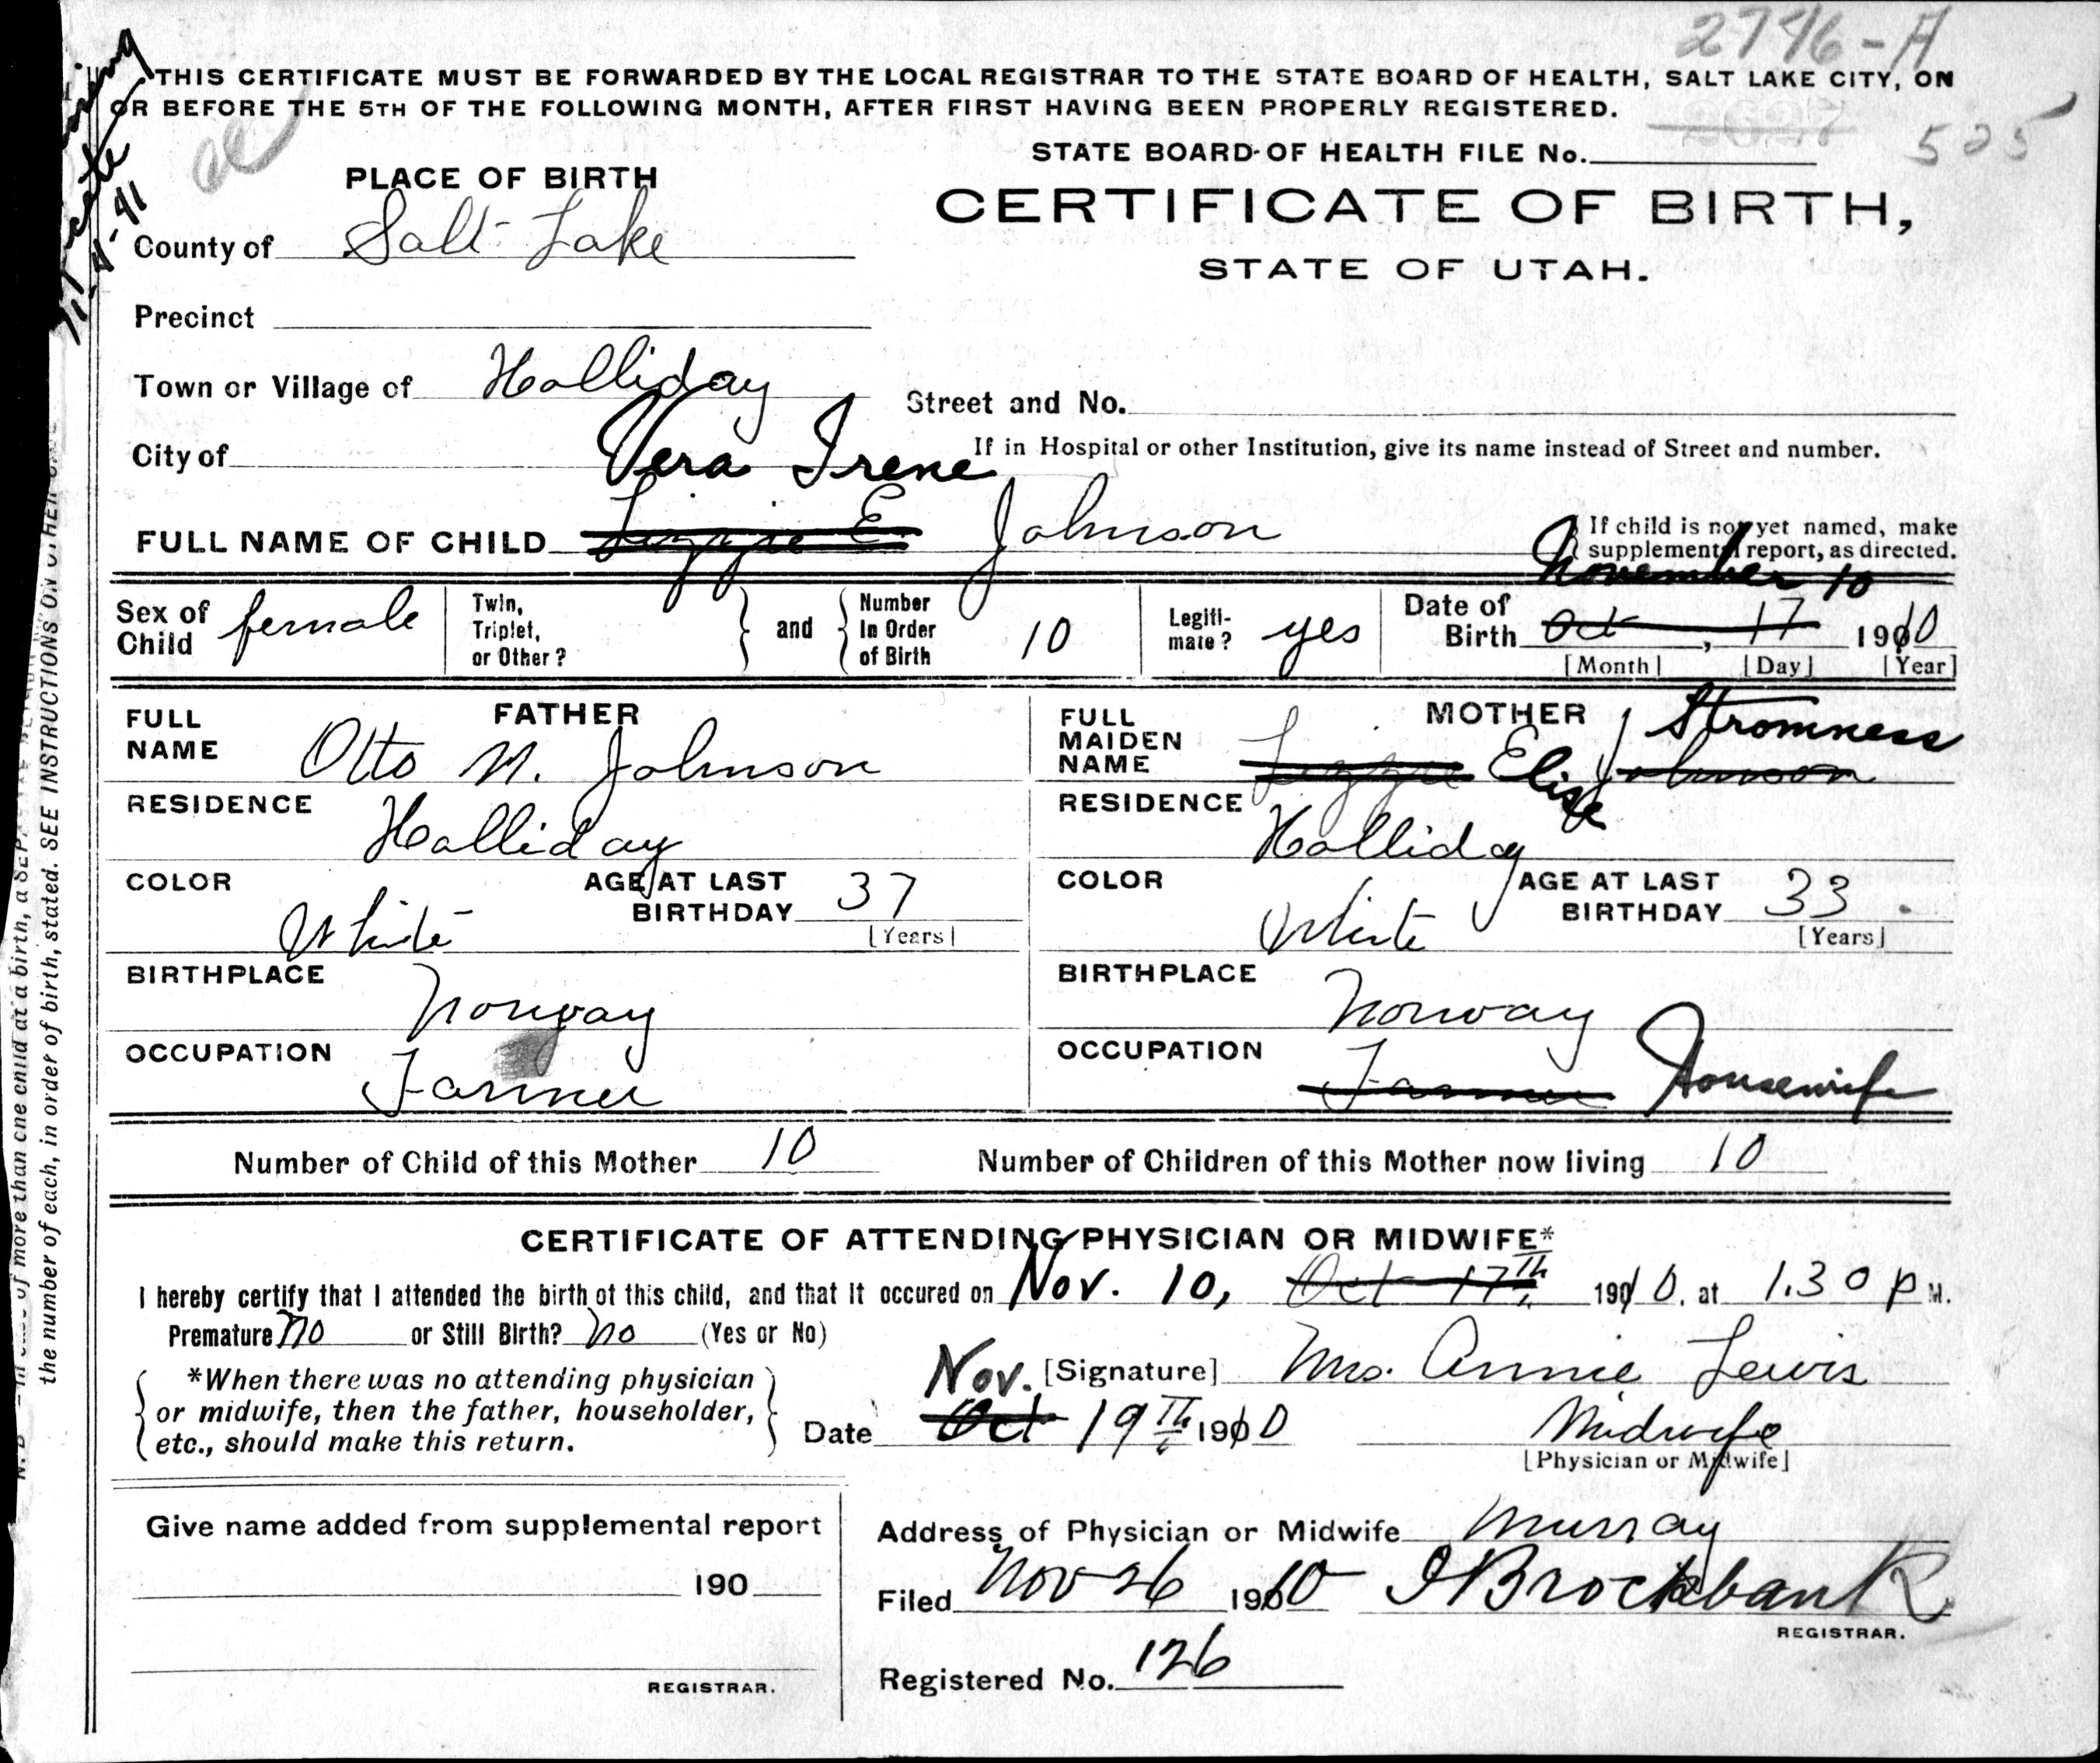 2796-A
THIS CERTIFICATE MUST BE FORWARDED BY THE LOCAL REGISTRAR TO THE STATE BOARD OF HEALTH, SALT LAKE CITY, ON
OR BEFORE THE 5TH OF THE FOLLOWING MONTH, AFTER FIRST HAVING BEEN PROPERLY REGISTERED.
2627 525
STATE BOARD OF HEALTH FILE No.
PLACE OF BIRTH
CERTIFICATE OF BIRTH,
STATE OF UTAH.
County of Salt Lake
Precinct
Town or Village of Holliday
Street and No.
City of
If in Hospital or other Institution, give its name instead of Street and number.
Vera Irene
FULL NAME OF CHILD Lizzie E Johnson
If child is not yet named, make
supplemental report, as directed.
November 10
Sex of Child female
Twin, Triplet, or Other? and Number In Order of Birth 10
Legitimate? yes
Date of Birth Oct, 17 1910
[Month] [Day] [Year]
FATHER
FULL NAME Otto N. Johnson
RESIDENCE Holliday
COLOR White
AGE AT LAST BIRTHDAY 37
[Years]
BIRTHPLACE Norway
OCCUPATION Farmer
MOTHER
FULL MAIDEN NAME Lizzie Elise Johnson Stromness
RESIDENCE Holliday
COLOR White
AGE AT LAST BIRTHDAY 33
[Years]
BIRTHPLACE Norway
OCCUPATION Farmer Housewife
Number of Child of this Mother 10 Number of Children of this Mother now living 10
CERTIFICATE OF ATTENDING PHYSICIAN OR MIDWIFE*
I hereby certify that I attended the birth of this child, and that it occured on Nov. 10, Oct 17th 1910, at 1.30 P M.
Premature no or Still Birth? no (Yes or No)
*When there was no attending physician
or midwife, then the father, householder,
etc., should make this return.
[Signature] Mrs. Annie Lewis
Date Nov. Oct 19th 1910
Midwife
[Physician or Midwife]
Give name added from supplemental report
190
REGISTRAR.
Address of Physician or Midwife Murray
Filed Nov 26 1910 I Brockbank
REGISTRAR.
Registered No. 126
of more than one child at a birth, a
the number of each, in order of birth, stated. SEE INSTRUCTIONS ON OTHER